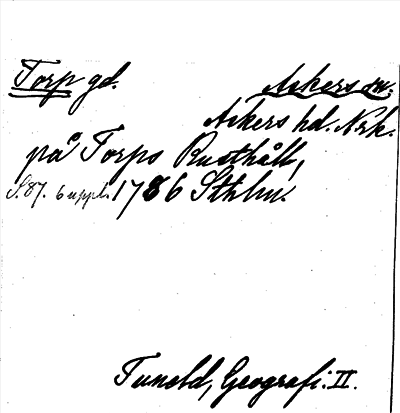 Torp gd. Åkers sn.
Åkers hd. Nrk.
på Torps Rusthåll,
S. 87. 6 uppl. 1786 Sthlm.
Tuneld, Geografi. II.